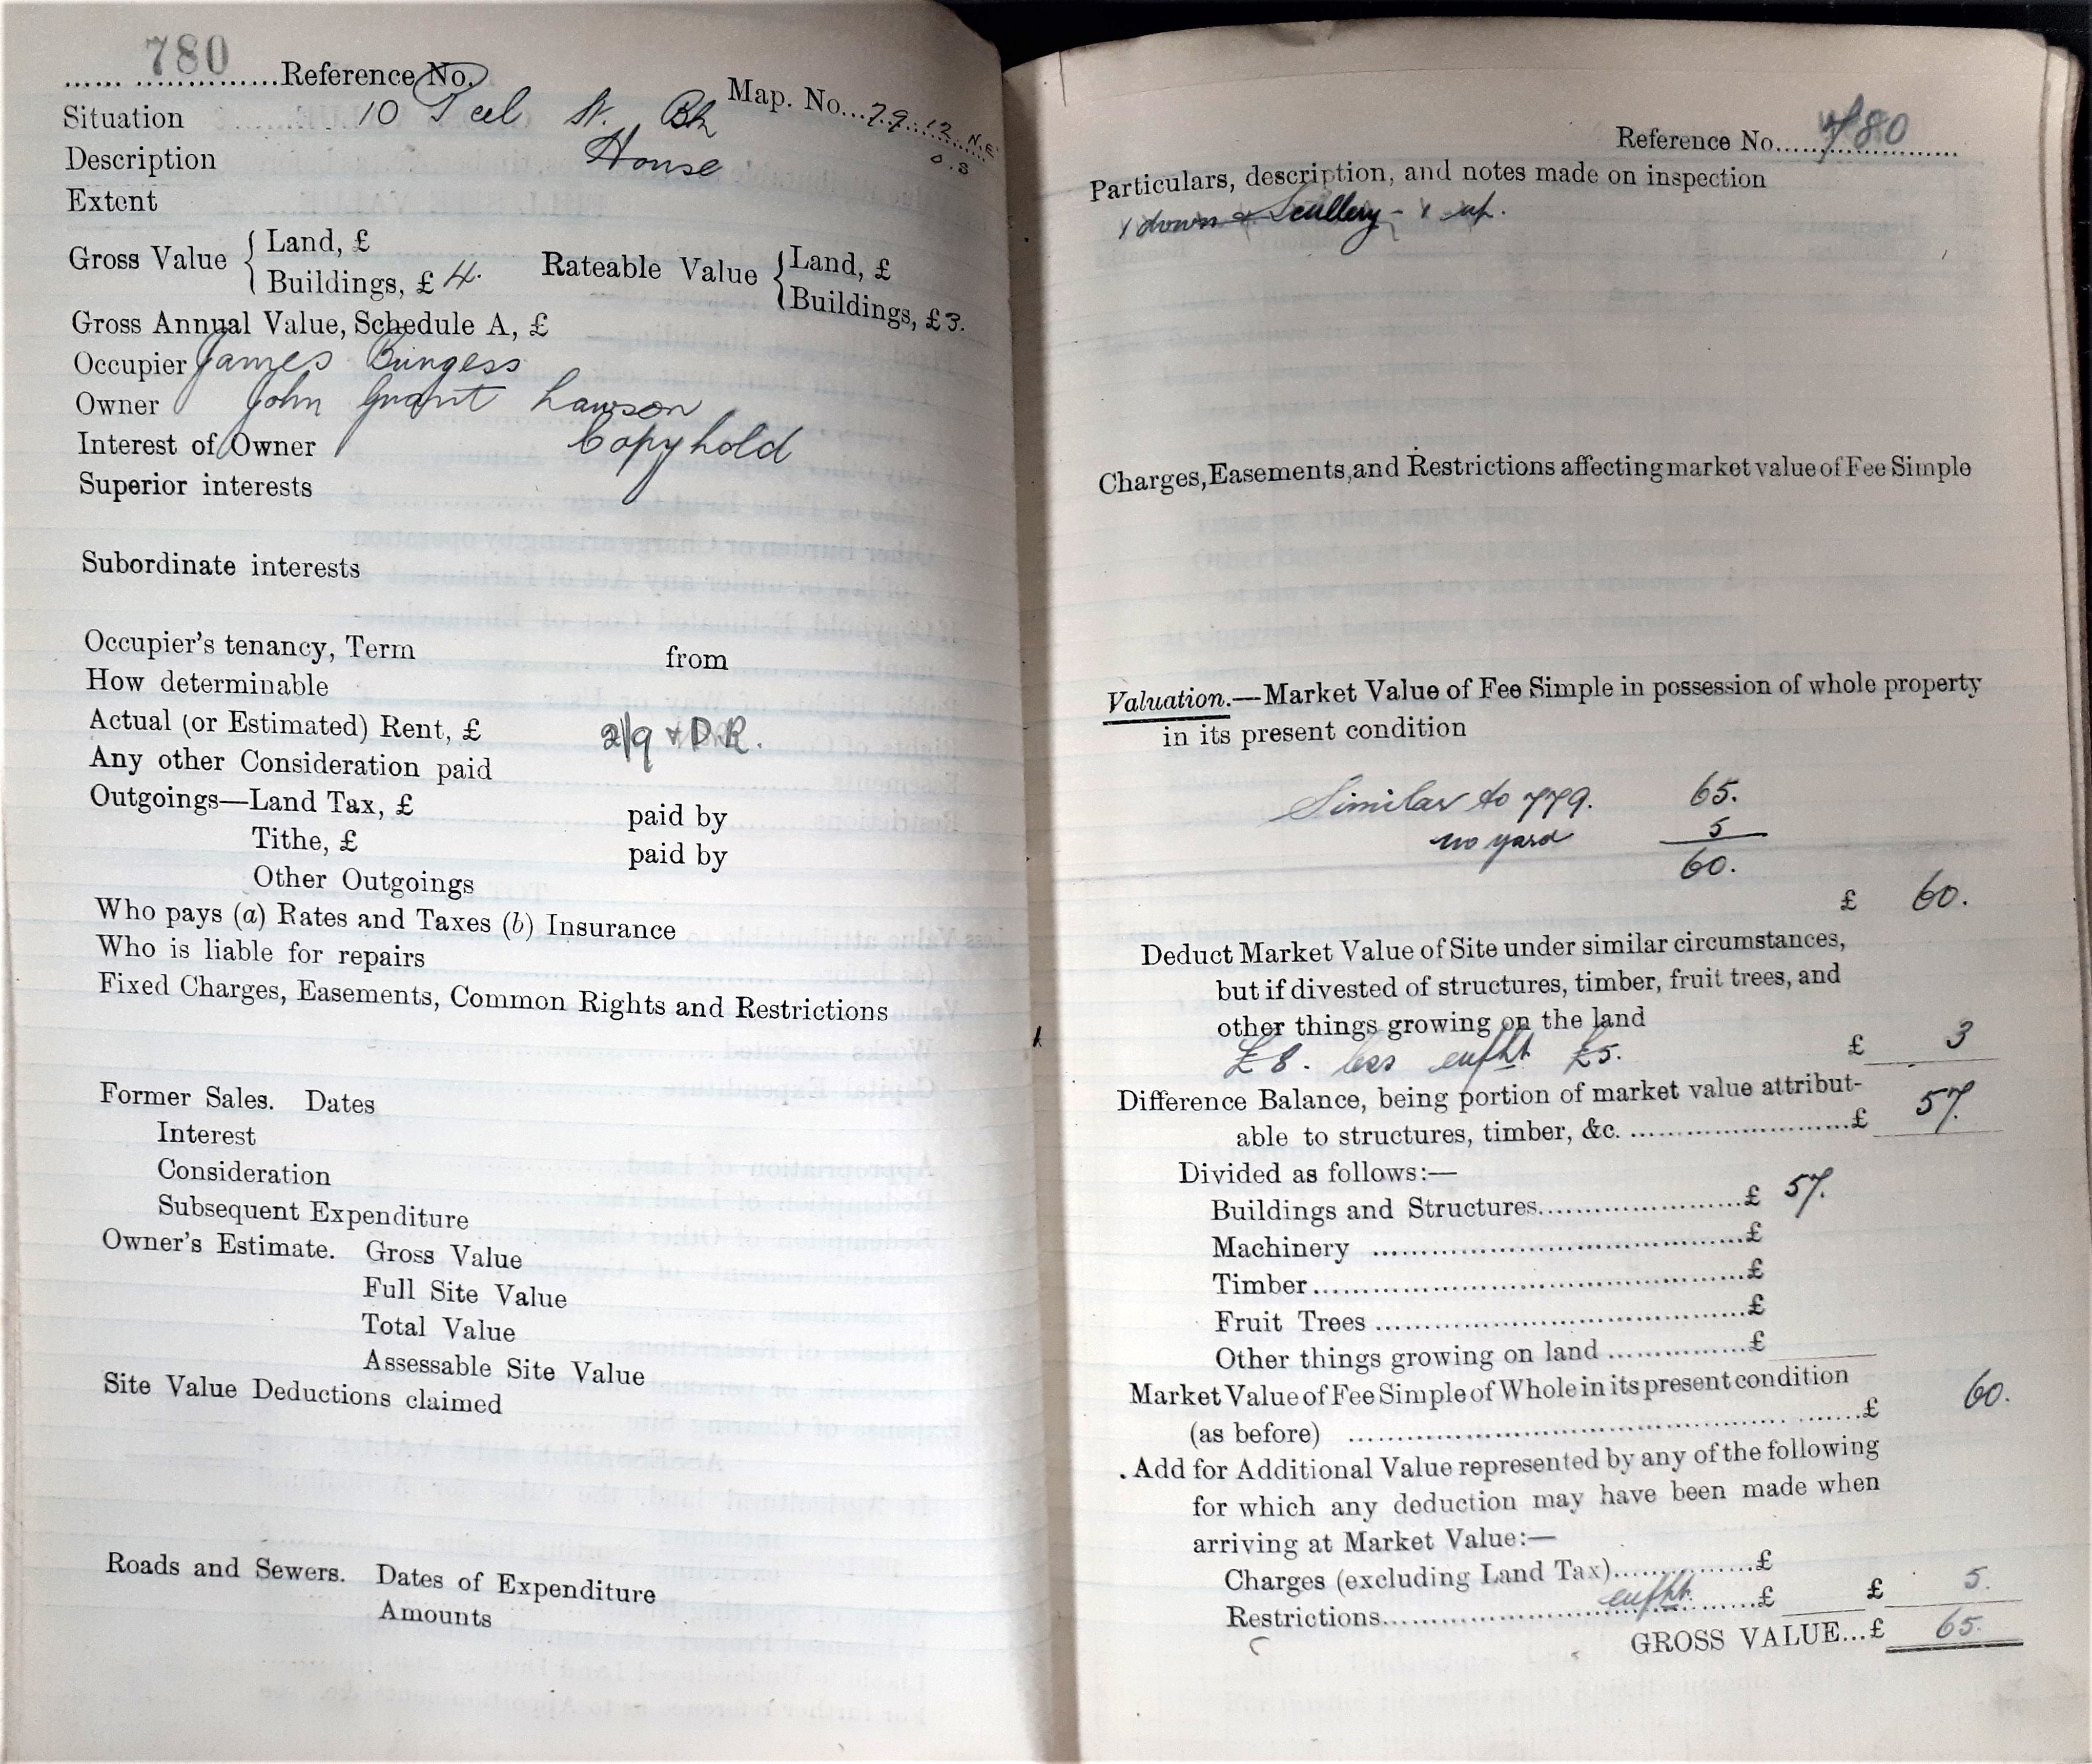 780
Reference No.
Map. No. 79.12. N.E.
Situation 10 Peel St. Bk
0.3
Description House
Extent
Gross Value { Land, £
Buildings, £ 4.
Rateable Value { Land, £
Buildings, £ 3.
Gross Annual Value, Schedule A, £
Occupier James Burgess
Owner John Grant Lawson
Interest of Owner Copyhold
Superior interests
Subordinate interests
Occupier's tenancy, Term from
How determinable
Actual (or Estimated) Rent, £ 2/9 + D.R.
Any other Consideration paid
Outgoings—Land Tax, £ paid by
Tithe, £ paid by
Other Outgoings
Who pays (a) Rates and Taxes (b) Insurance
Who is liable for repairs
Fixed Charges, Easements, Common Rights and Restrictions
Former Sales. Dates
Interest
Consideration
Subsequent Expenditure
Owner's Estimate. Gross Value
Full Site Value
Total Value
Assessable Site Value
Site Value Deductions claimed
Roads and Sewers. Dates of Expenditure
Amounts
Reference No. 780
Particulars, description, and notes made on inspection
1 down & Scullery - 1 up.
Charges, Easements, and Restrictions affecting market value of Fee Simple
Valuation.—Market Value of Fee Simple in possession of whole property
in its present condition
Similar to 779. 65.
no yard 5
60.
£ 60.
Deduct Market Value of Site under similar circumstances,
but if divested of structures, timber, fruit trees, and
other things growing on the land
£8. less enfht. £5. £ 3
Difference Balance, being portion of market value attribut-
able to structures, timber, &c. £ 57.
Divided as follows:—
Buildings and Structures £ 57.
Machinery £
Timber £
Fruit Trees £
Other things growing on land £
Market Value of Fee Simple of Whole in its present condition
(as before) £ 60.
Add for Additional Value represented by any of the following
for which any deduction may have been made when
arriving at Market Value:—
Charges (excluding Land Tax) £
Restrictions enfht. £ £ 5.
GROSS VALUE...£ 65.